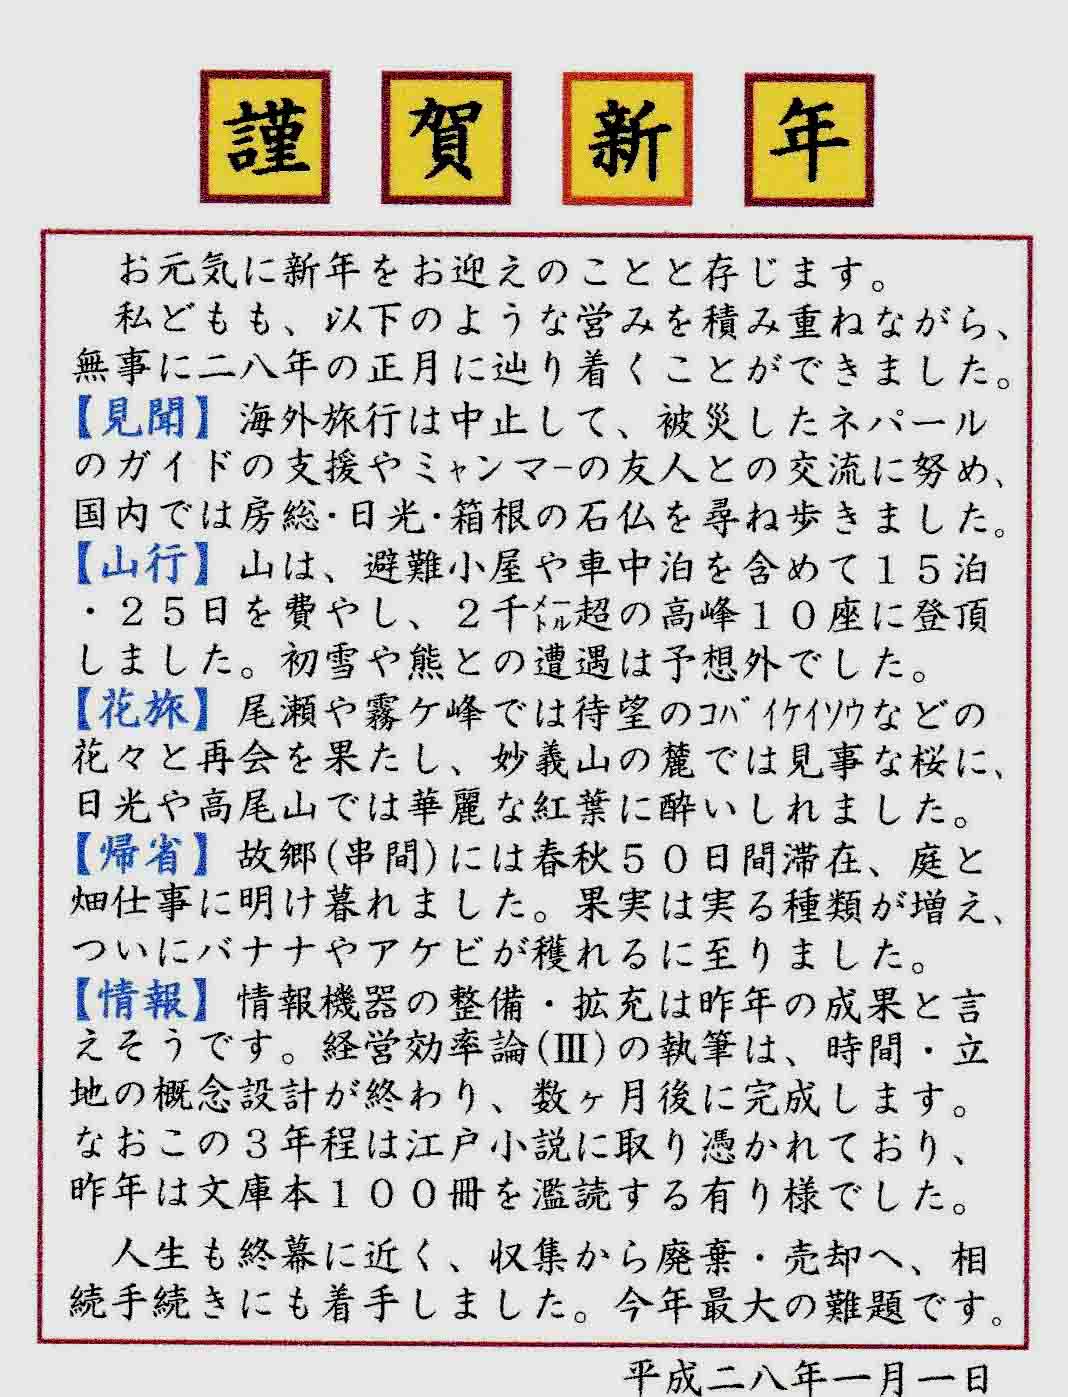 謹賀新年
お元気に新年をお迎えのことと存じます。
私どもも、以下のような営みを積み重ねながら、
無事に二八年の正月に辿り着くことができました。
【見聞】海外旅行は中止して、被災したネパール
のガイドの支援やミャンマーの友人との交流に努め、
国内では房総・日光・箱根の石仏を尋ね歩きました。
【山行】山は、避難小屋や車中泊を含めて１５泊
・２５日を費やし、２千㍍超の高峰１０座に登頂
しました。初雪や熊との遭遇は予想外でした。
【花旅】尾瀬や霧ケ峰では待望のｺﾊﾞｲｹｲｿｳなどの
花々と再会を果たし、妙義山の麓では見事な桜に、
日光や高尾山では華麗な紅葉に酔いしれました。
【帰省】故郷(串間)には春秋５０日間滞在、庭と
畑仕事に明け暮れました。果実は実る種類が増え、
ついにバナナやアケビが穫れるに至りました。
【情報】情報機器の整備・拡充は昨年の成果と言
えそうです。経営効率論(Ⅲ)の執筆は、時間・立
地の概念設計が終わり、数ヶ月後に完成します。
なおこの３年程は江戸小説に取り憑かれており、
昨年は文庫本１００冊を濫読する有り様でした。
人生も終幕に近く、収集から廃棄・売却へ、相
続手続きにも着手しました。今年最大の難題です。
平成二八年一月一日